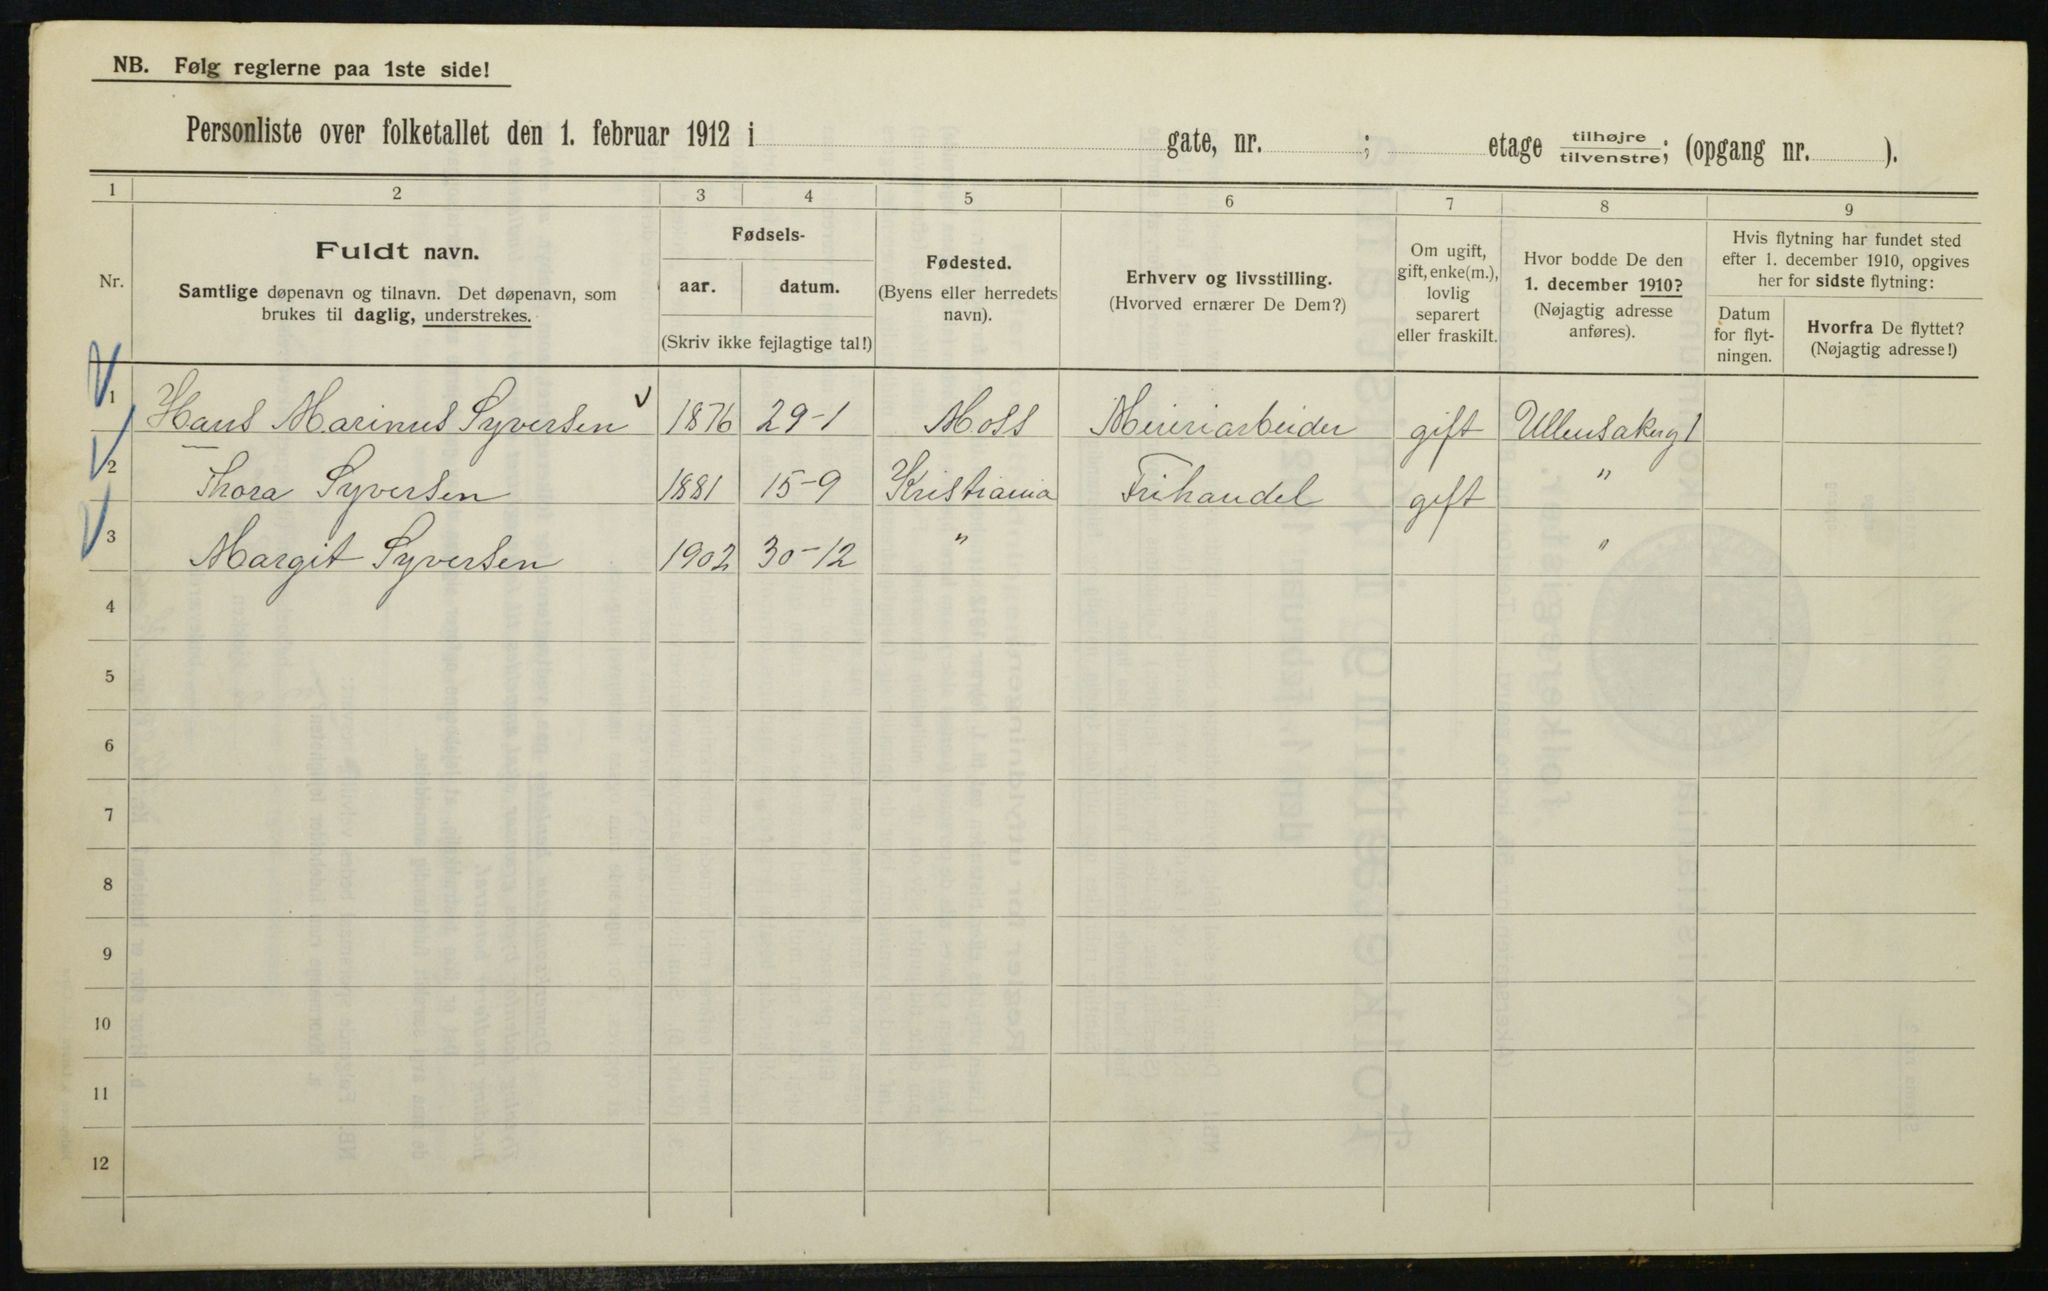 NB. Følg reglerne paa 1ste side!
Personliste over folketallet den 1. februar 1912 i gate, nr. ; etage tilhøjre/tilvenstre; (opgang nr. ).
1 2 3 4 5 6 7 8 9
Nr.
Fuldt navn.
Samtlige døpenavn og tilnavn. Det døpenavn, som
brukes til daglig, understrekes.
Fødsels-
aar. datum.
(Skriv ikke fejlagtige tal!)
Fødested.
(Byens eller herredets
navn).
Erhverv og livsstilling.
(Hvorved ernærer De Dem?)
Om ugift,
gift, enke(m.),
lovlig
separert
eller fraskilt.
Hvor bodde De den
1. december 1910?
(Nøjagtig adresse
anføres).
Hvis flytning har fundet sted
efter 1. december 1910, opgives
her for sidste flytning:
Datum
for flyt-
ningen.
Hvorfra De flyttet?
(Nøjagtig adresse!)
1 Hans Marinus Syversen 1876 29-1 Moss Meieriarbeider gift Ullensakerg 1
2 Thora Syversen 1881 15-9 Kristiania Frihandel gift "
3 Margit Syversen 1902 30-12 " "
4
5
6
7
8
9
10
11
12